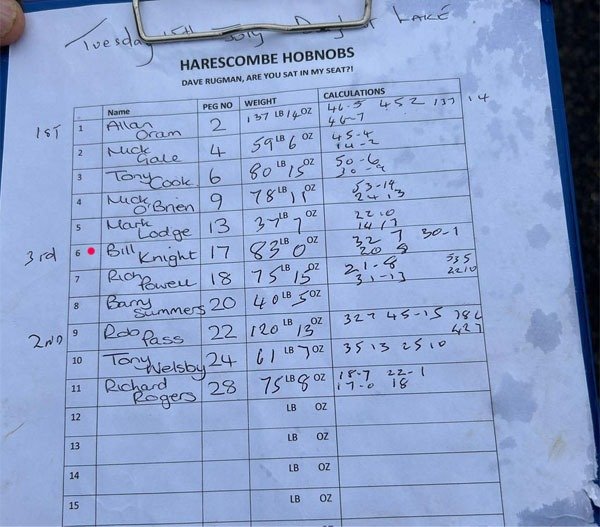 Tuesday 15th July LAKE
HARESCOMBE HOBNOBS
DAVE RUGMAN, ARE YOU SAT IN MY SEAT?!
Name PEG NO WEIGHT CALCULATIONS
1ST 1 Allan Oram 2 137 LB 14 OZ 46-5 452 137 14
46-7
2 Mick Gale 4 59 LB 6 OZ 45-4
14-2
3 Tony Cook 6 80 LB 15 OZ 50-6
30-9
4 Mick O'Brien 9 78 LB 11 OZ 53-14
24 13
5 Mark Lodge 13 37 LB 7 OZ 22 0
3rd 6 Bill Knight 17 83 LB 0 OZ 32 7 30-1
20 8
7 Rich Powell 18 75 LB 15 OZ 21-8 535
31-13 2210
8 Barry Summers 20 40 LB 5 OZ
2ND 9 Rob Pass 22 120 LB 13 OZ 327 45-15 786
427
10 Tony Welsby 24 61 LB 7 OZ 35 13 25 10
11 Richard Rogers 28 75 LB 8 OZ 18-7 22-1
17-0 18
12 LB OZ
13 LB OZ
14 LB OZ
15 LB OZ